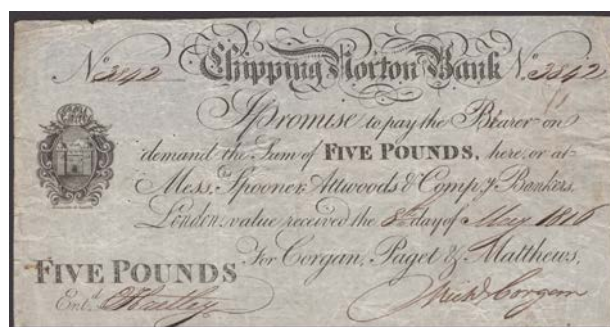 No. 3842 Chipping Norton Bank No. 3842
I Promise to pay the Bearer on
demand the Sum of FIVE POUNDS, here, or at
Mess. Spooner, Attwoods & Compy. Bankers,
London. value received the 8th day of May 1816
For Corgan, Paget & Matthews,
FIVE POUNDS
Entd.
Corgan